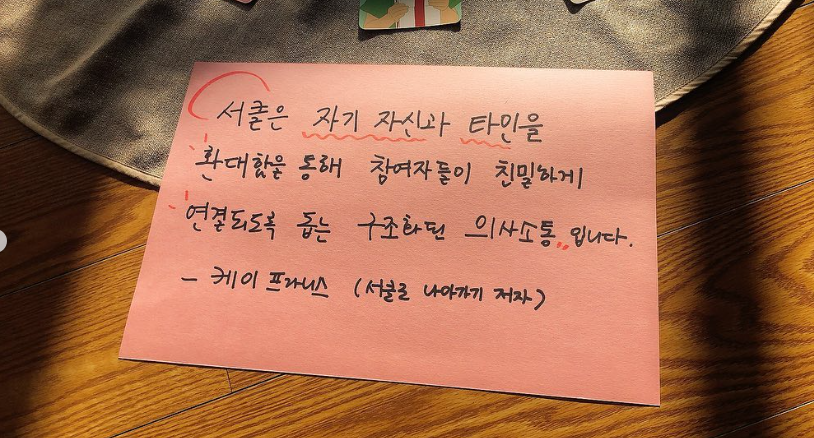 서클은 자기 자신과 타인을
환대함을 통해 참여자들이 친밀하게
연결되도록 돕는 구조화된 의사소통입니다.
- 케이 프라니스 (서클로 나아가기 저자)